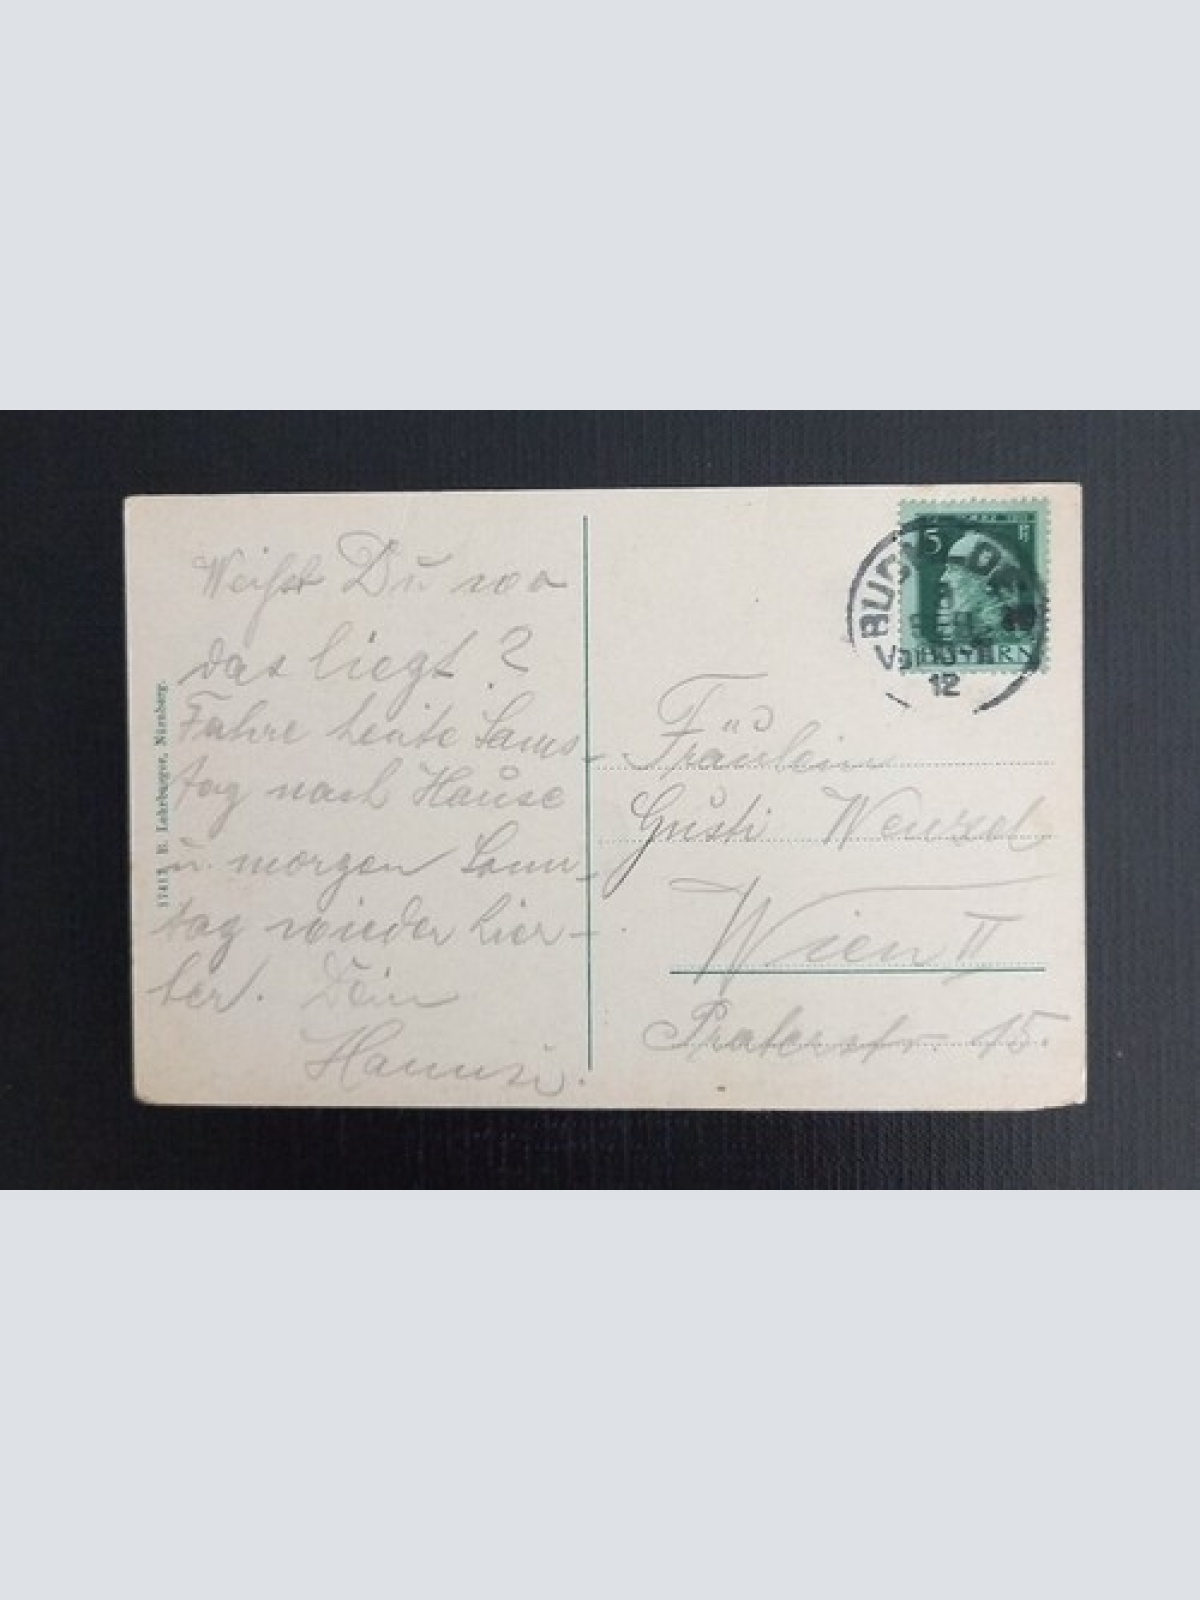 Weißt Du wo
das liegt?
Fahre heute Sams-
tag nach Hause
u. morgen Sonn-
tag wieder hier-
her. Dein
Hannsi.
17417 B. Lehrburger, Nürnberg.
5 Pf
BAYERN
12
Fräulein
Gusti Wenzel
Wien II
Praterstr. 15.